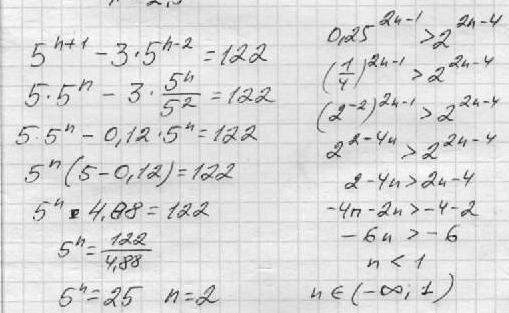 5^{n+1} - 3·5^{n-2} = 122
5·5^n - 3·\frac{5^n}{5^2} = 122
5·5^n - 0,12·5^n = 122
5^n(5-0,12) = 122
5^n · 4,88 = 122
5^n = \frac{122}{4,88}
5^n = 25 n = 2
0,25^{2n-1} > 2^{2n-4}
(\frac{1}{4})^{2n-1} > 2^{2n-4}
(2^{-2})^{2n-1} > 2^{2n-4}
2^{2-4n} > 2^{2n-4}
2-4n > 2n-4
-4n-2n > -4-2
-6n > -6
n < 1
n ∈ (-∞; 1)